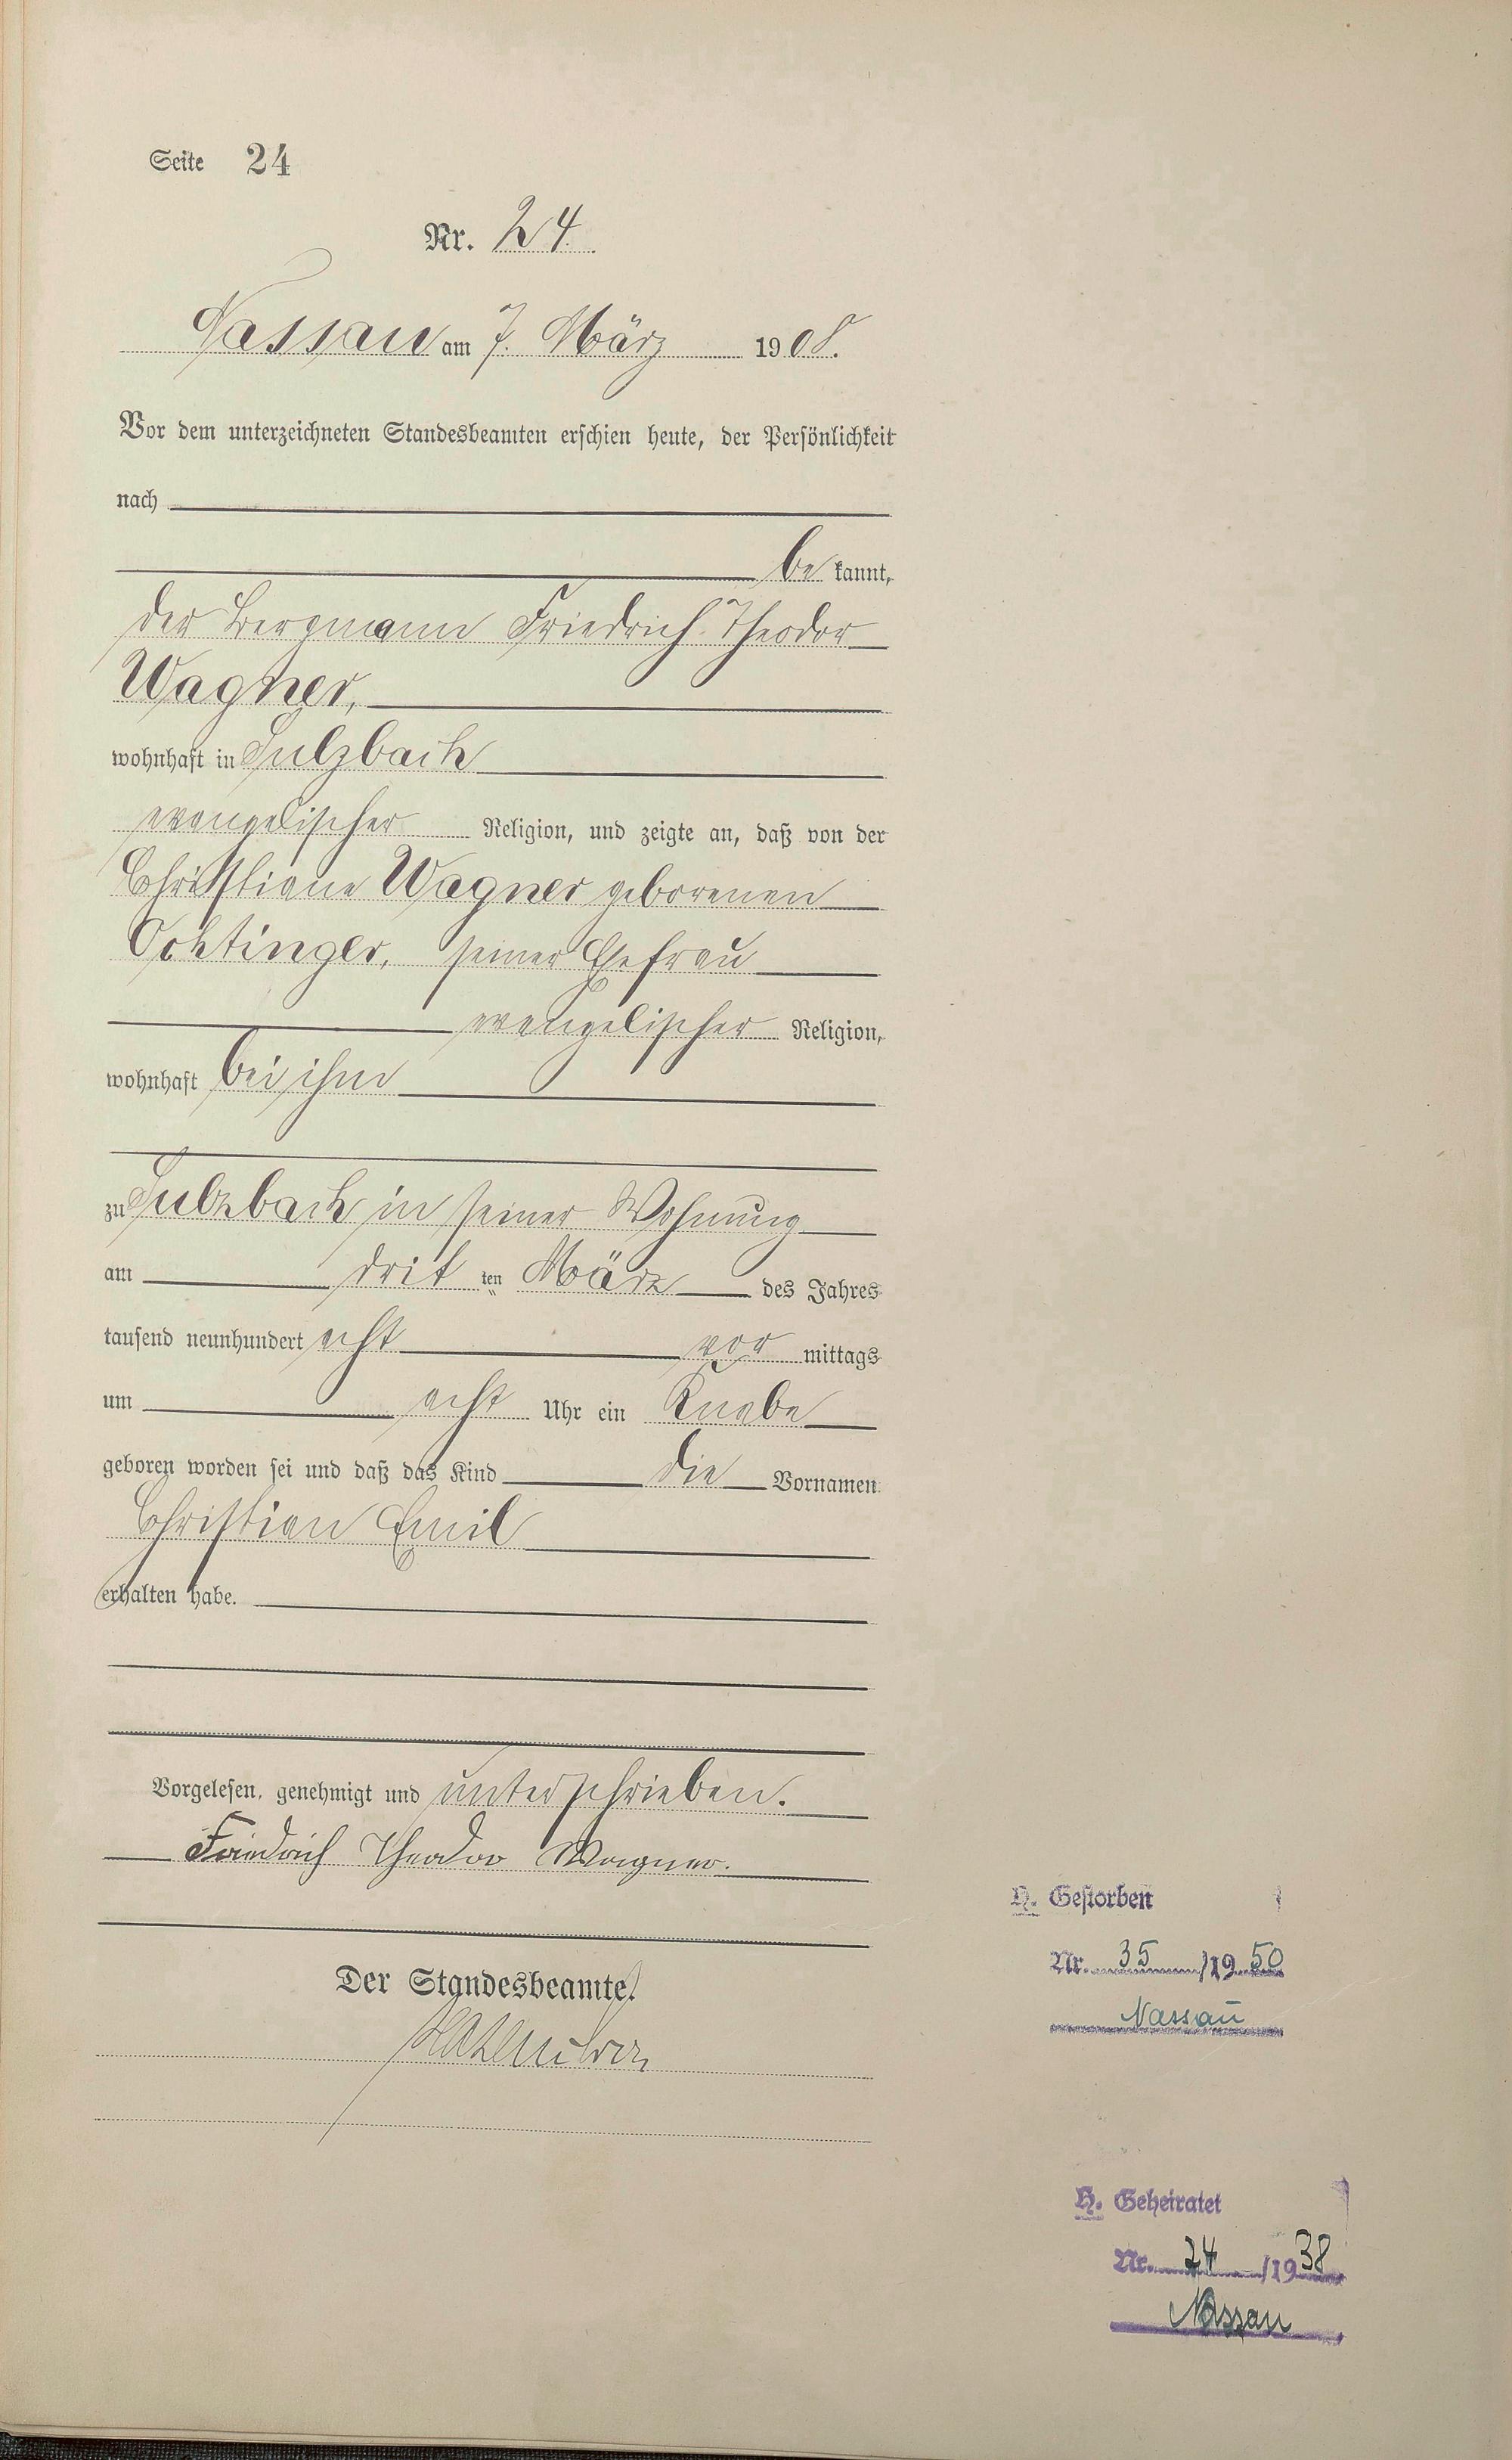 Seite 24
Nr. 24.
Nassau am 7. März 1908.
Vor dem unterzeichneten Standesbeamten erschien heute, der Persönlichkeit
nach
be kannt,
der Bergmann Friedrich Theodor
Wagner,
wohnhaft in Sulzbach
evangelischer Religion, und zeigte an, daß von der
Christiane Wagner geborenen
Ochtinger, seiner Ehefrau
evangelischer Religion,
wohnhaft bei ihm
zu Sulzbach in seiner Wohnung
am drit ten März des Jahres
tausend neunhundert acht vor mittags
um acht Uhr ein Knabe
geboren worden sei und daß das Kind die Vornamen
Christian Emil
erhalten habe.
Vorgelesen, genehmigt und unterschrieben.
Friedrich Theodor Wagner.
Der Standesbeamte.
H. Gestorben
Nr. 35 /19 50
Nassau
H. Geheiratet
Nr. 24 /19 38
Nassau